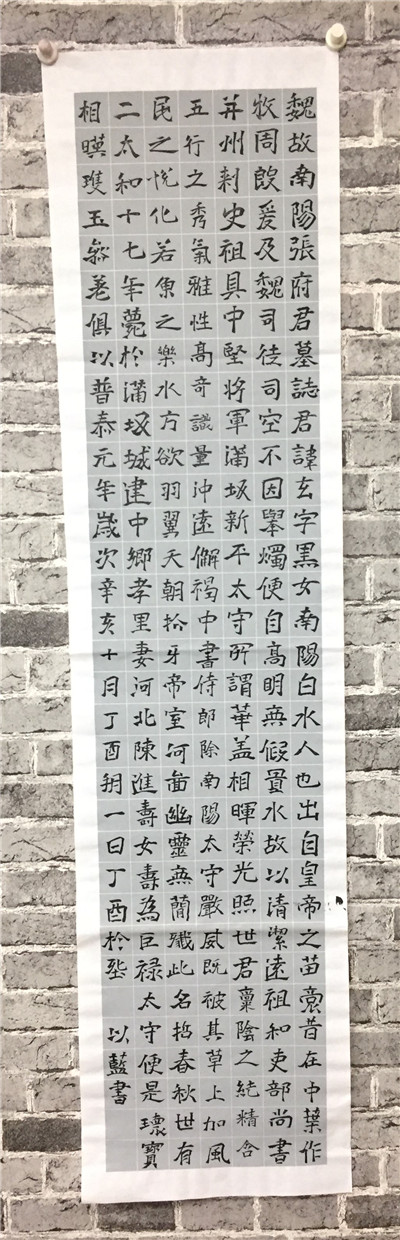 魏故南陽張府君墓誌君諱玄字黑女南陽白水人也出自皇帝之苗裔昔在中葉作
牧周殷爰及魏司徒司空不因舉燭便自高明無假置水故以清潔遠祖和吏部尚書
并州刺史祖具中堅將軍蒲坂新平太守所謂華蓋相暉榮光照世君稟陰之純精含
五行之秀氣雅性高奇識量沖遠解褐中書侍郎除南陽太守嚴威既被其草上加風
民之悅化若魚之樂水方欲羽翼天朝抓牙帝室何啚幽靈無簡殲此名哲春秋世有
二太和十七年薨於蒲坂城建中鄉孝里妻河北陳進壽女壽為巨祿太守便是瓌寶
相暎瓊玉參差俱以普泰元年歲次辛亥十月丁酉朔一日丁酉於此 以藍書